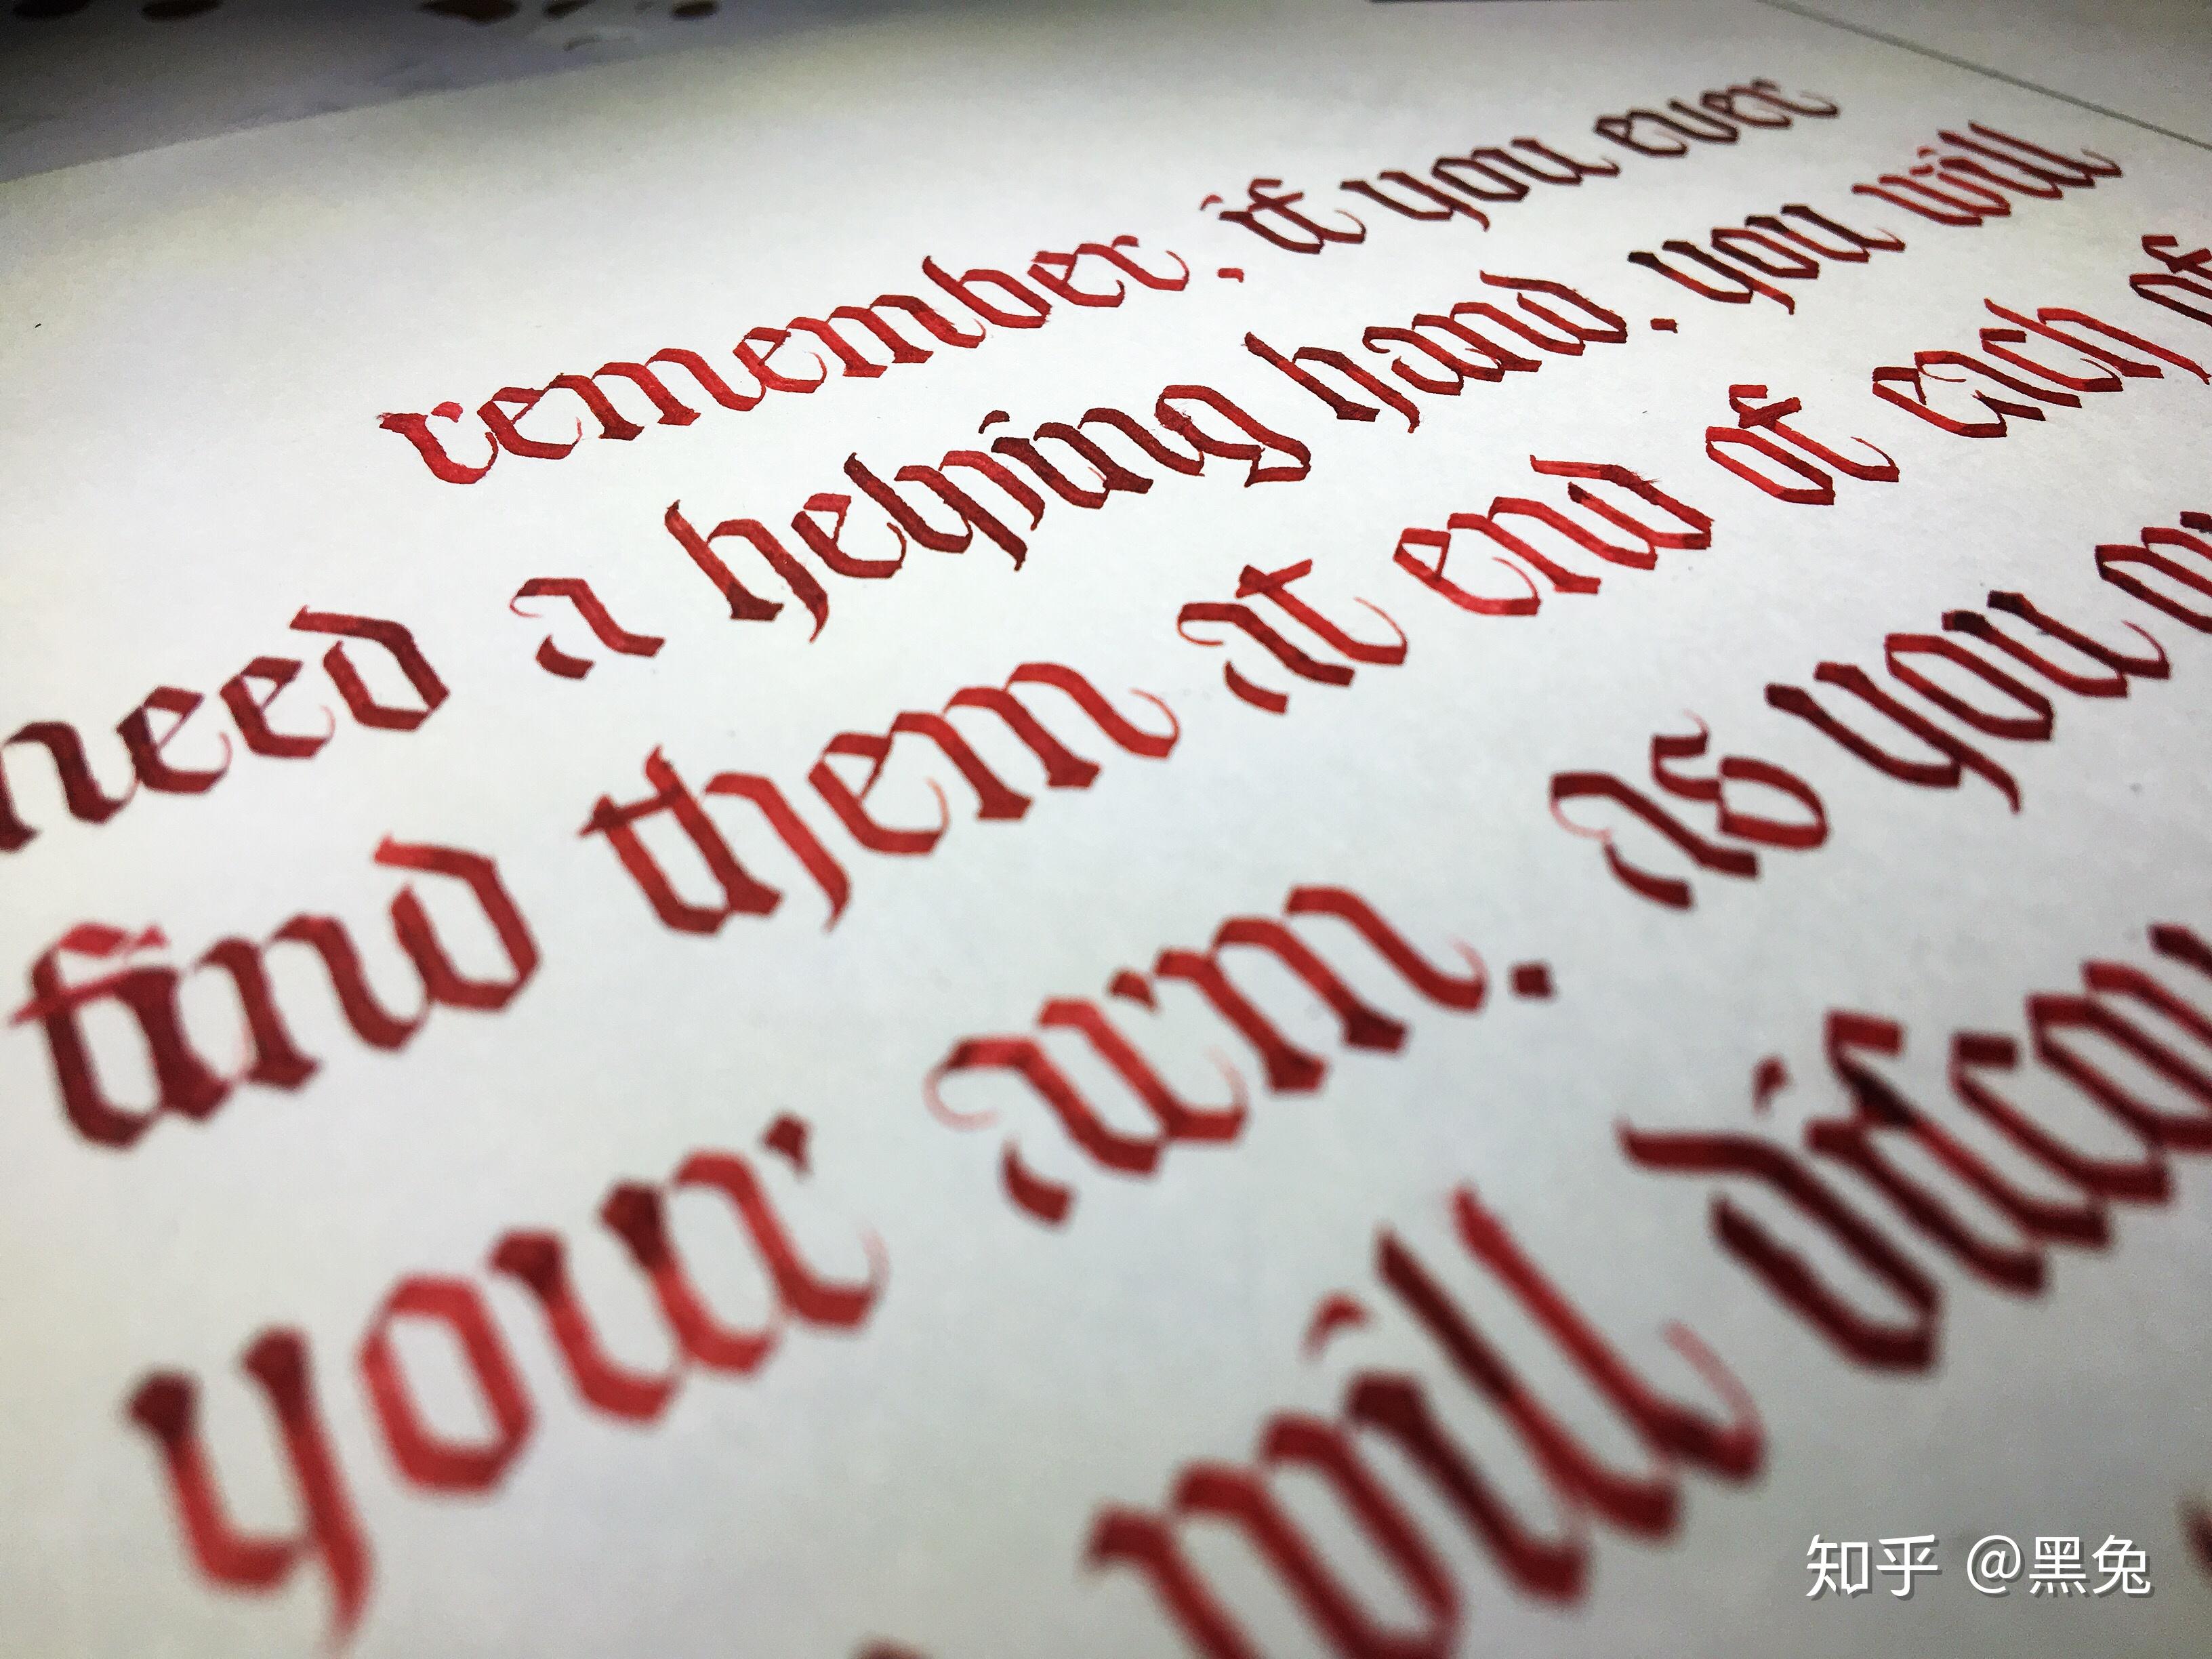 remember. if you ever
need a helping hand. you will
find them at end of each of
your arm. As you
will
知乎 @黑兔